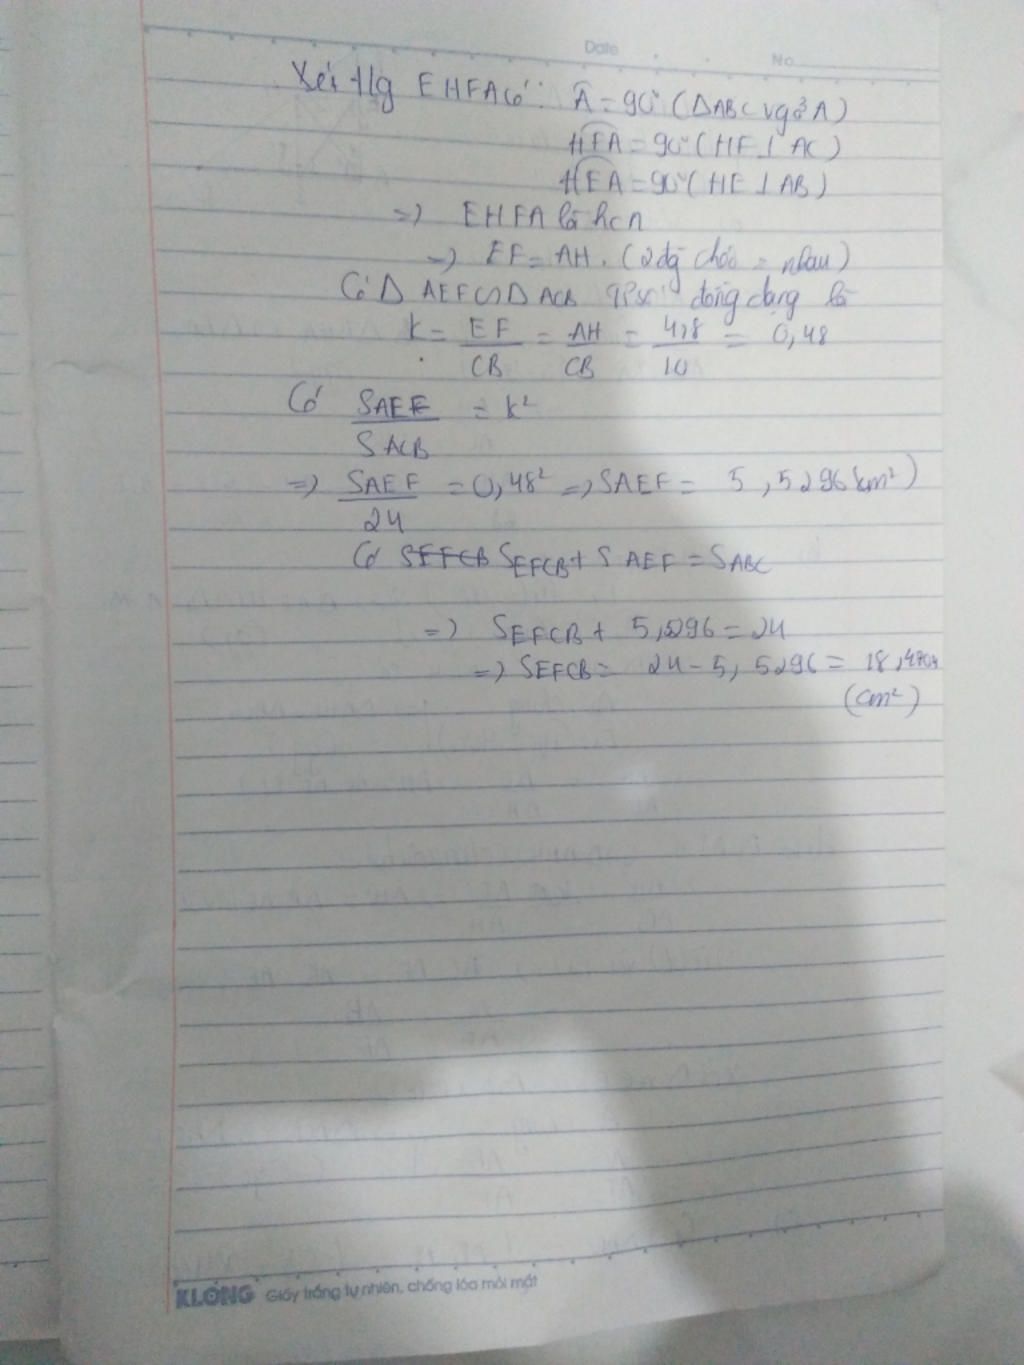 Date No
Xét tứg EHFA có: Â = 90° (ΔABC vg ở A)
HFA = 90° (HF ⊥ AC)
HEA = 90° (HE ⊥ AB)
=> EHFA là hcn
=> EF = AH. (2 đg chéo = nhau)
Có Δ AEF ∽ Δ ACB tỉ số đồng dạng là
k = EF/CB = AH/CB = 4,8/10 = 0,48
Có SAEF/SACB = k²
=> SAEF/24 = 0,48² => SAEF = 5,5296 (cm²)
Có SEFCB + SAEF = SABC
=> SEFCB + 5,5296 = 24
=> SEFCB = 24 - 5,5296 = 18,4704
(cm²)
KLONG Giấy trắng tự nhiên, chống lóa mỏi mắt